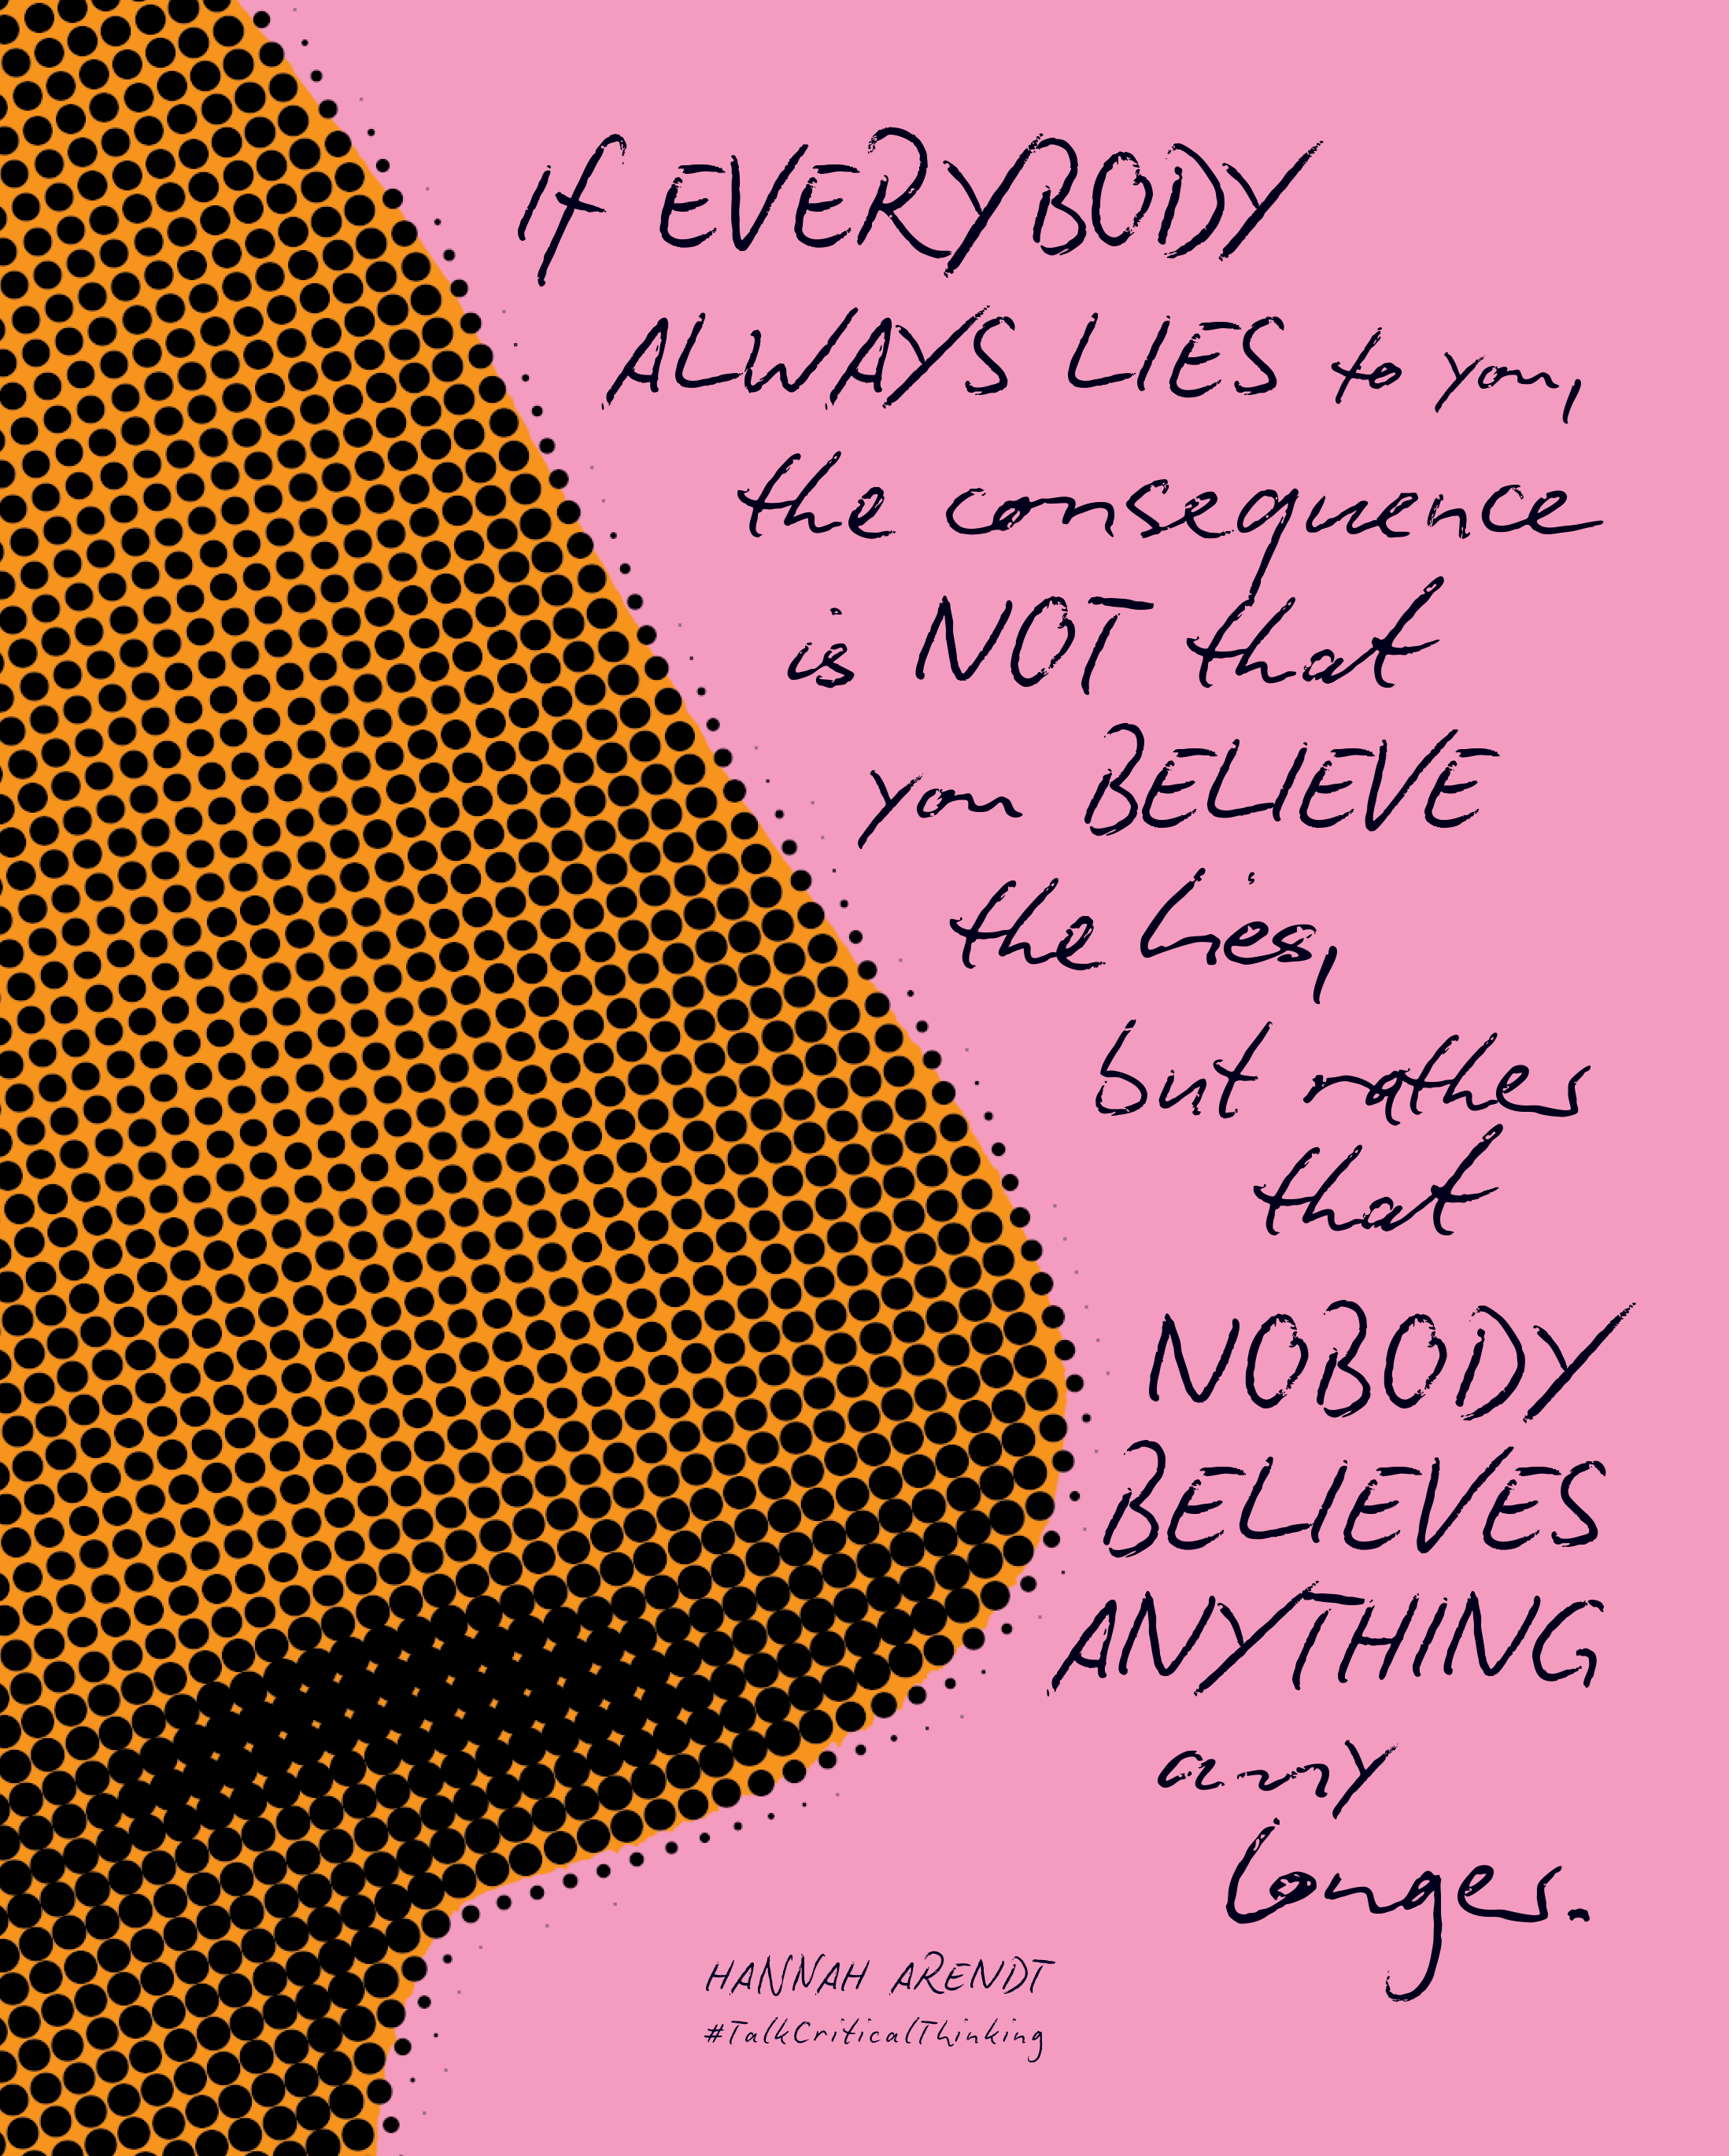 If EVERYBODY
ALWAYS LIES to you,
the consequence
is NOT that
you BELIEVE
the lies,
but rather
that
NOBODY
BELIEVES
ANYTHING
any
longer.
HANNAH ARENDT
#TalkCriticalThinking